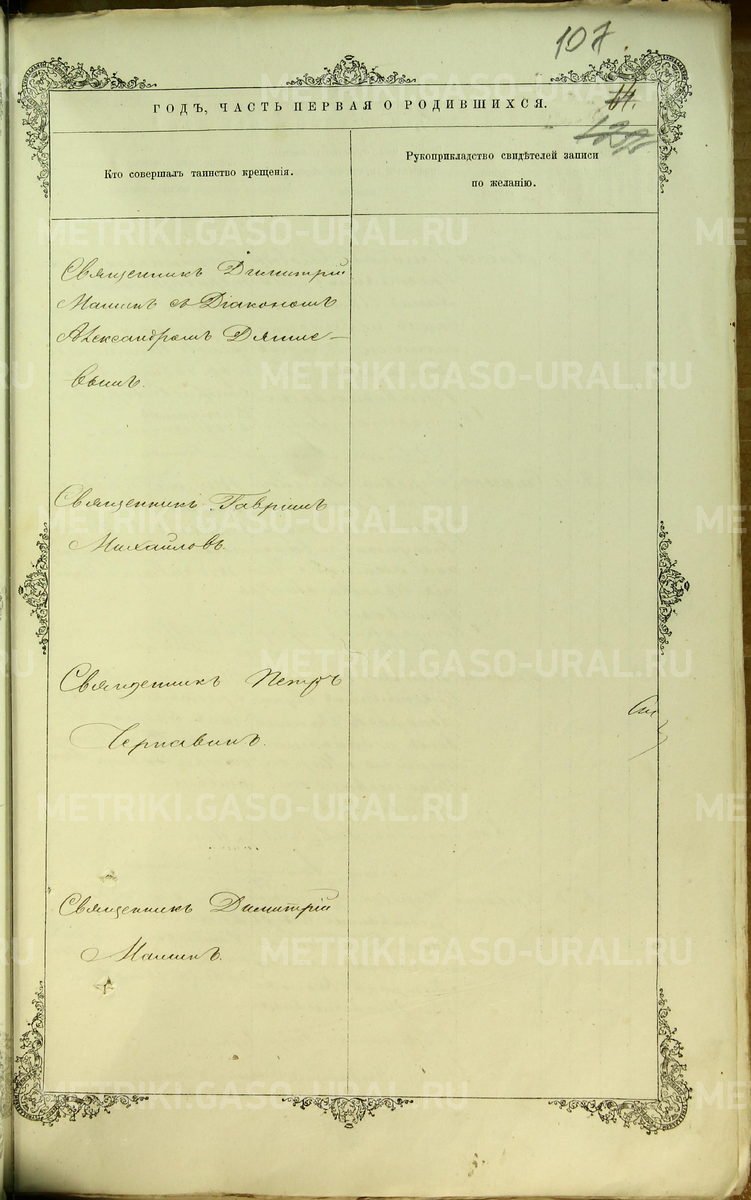 107.
ГОДЪ, ЧАСТЬ ПЕРВАЯ О РОДИВШИХСЯ.
64.
Кто совершалъ таинство крещенія.
Рукоприкладство свидѣтелей записи
по желанію.
Священникъ Димитрій
Маминъ съ Діакономъ
Александромъ
вымъ.
Священникъ Гавріилъ
Михайловъ.
Священникъ Петръ
Чернавинъ.
Священникъ Димитрій
Маминъ.
METRIKI.GASO-URAL.RU